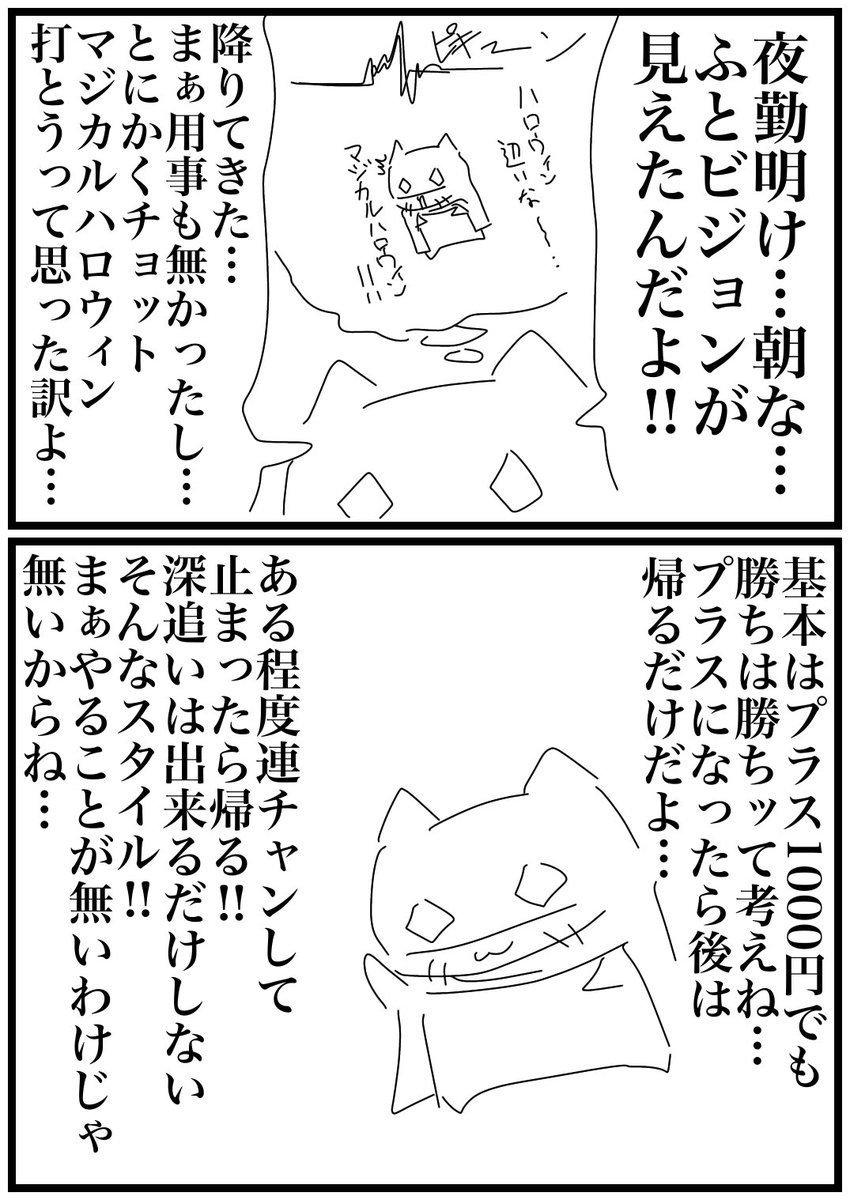 夜勤明け…朝な…
ふとビジョンが
見えたんだよ!!
ピキーン
ハロウィン
辺いな〜…
マジカルハロウィン
!!!
降りてきた…
まぁ用事も無かったし…
とにかくチョット
マジカルハロウィン
打とうって思った訳よ…
基本はプラス1000円でも
勝ちは勝ちッて考えね…
プラスになったら後は
帰るだけだよ…
ある程度連チャンして
止まったら帰る!!
深追いは出来るだけしない
そんなスタイル!!
まぁやることが無いわけじゃ
無いからね…